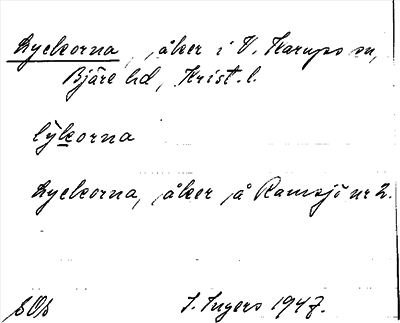 Lyckorna, åker i V. Karups sn,
Bjäre hd, Krist. l.
lýkorna
Lyckorna, åker å Ramsjö nr 2.
I. Ingers 1947.